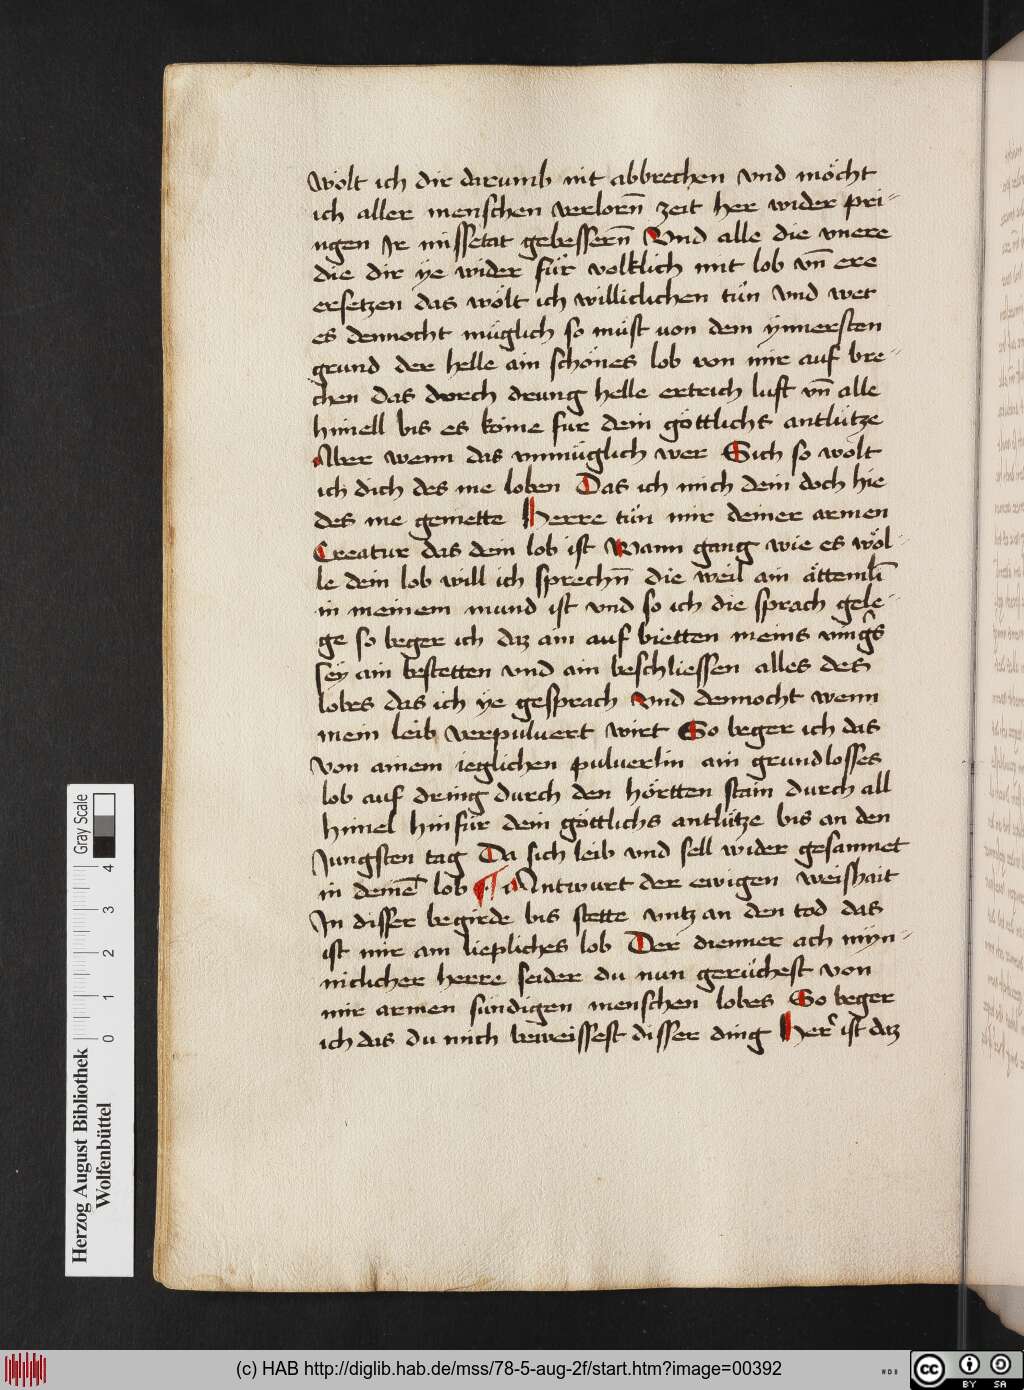 wölt ich dir darumb nit abbrechen vnd möcht
ich aller menschen verlorn̄ zeit her wider pri-
ngen Jr missetat gebessern̄ Vnd alle die vnere
die dir ye wider für volklich mit lob vn̄ ere
ersetzen das wölt ich williclichen tůn vnd wer
es dennocht müglich so müst von dem ynnersten
grund der helle ain schönes lob von mir auf bre-
chen das dorch drung helle ertrich luft vn̄ alle
himell bis esköme fur dein göttlichs antlütze
Aber wenn das vnmüglich wer Sich so wölt
ich dich des me loben Das ich mich dein doch hie
des me geniette Herre tůn mir deiner armen
Creatur das dein lob ist Wann gang wie es wöl-
le dein lob will ich sprechn̄ die weil ain ättemlī
in meinem mund ist vnd so ich die sprach gele-
ge so beger ich daz ain auf bietten meins
sey ain bestetten vnd ain beschliessen alles des
lobes das ich ye gesprach vnd dennocht wenn
mein leib verpuluert wirt So beger ich das
von ainem ieglichen puluerlin ain grundlosses
lob auf dring durch den hörtten stain durch all
himel hinfür dein göttlichs antlütze bis an den
Jungsten tag Da sich leib vnd sell wider gesamnet
in deinē lob ¶ Antwurt der ewigen weishait
Jn disser begirde bis stette vntz an den tod das
ist mir am liepliches lob Der dienner ach myn-
niclicher herre seider du nun gerüchest von
mir armen sündigen menschen lobes So beger
ich das du mich beweissest disser ding Her ist daz
Herzog August Bibliothek
Wolfenbüttel
0 1 2 3 4
Gray Scale
(c) HAB http://diglib.hab.de/mss/78-5-aug-2f/start.htm?image=00392
cc BY SA